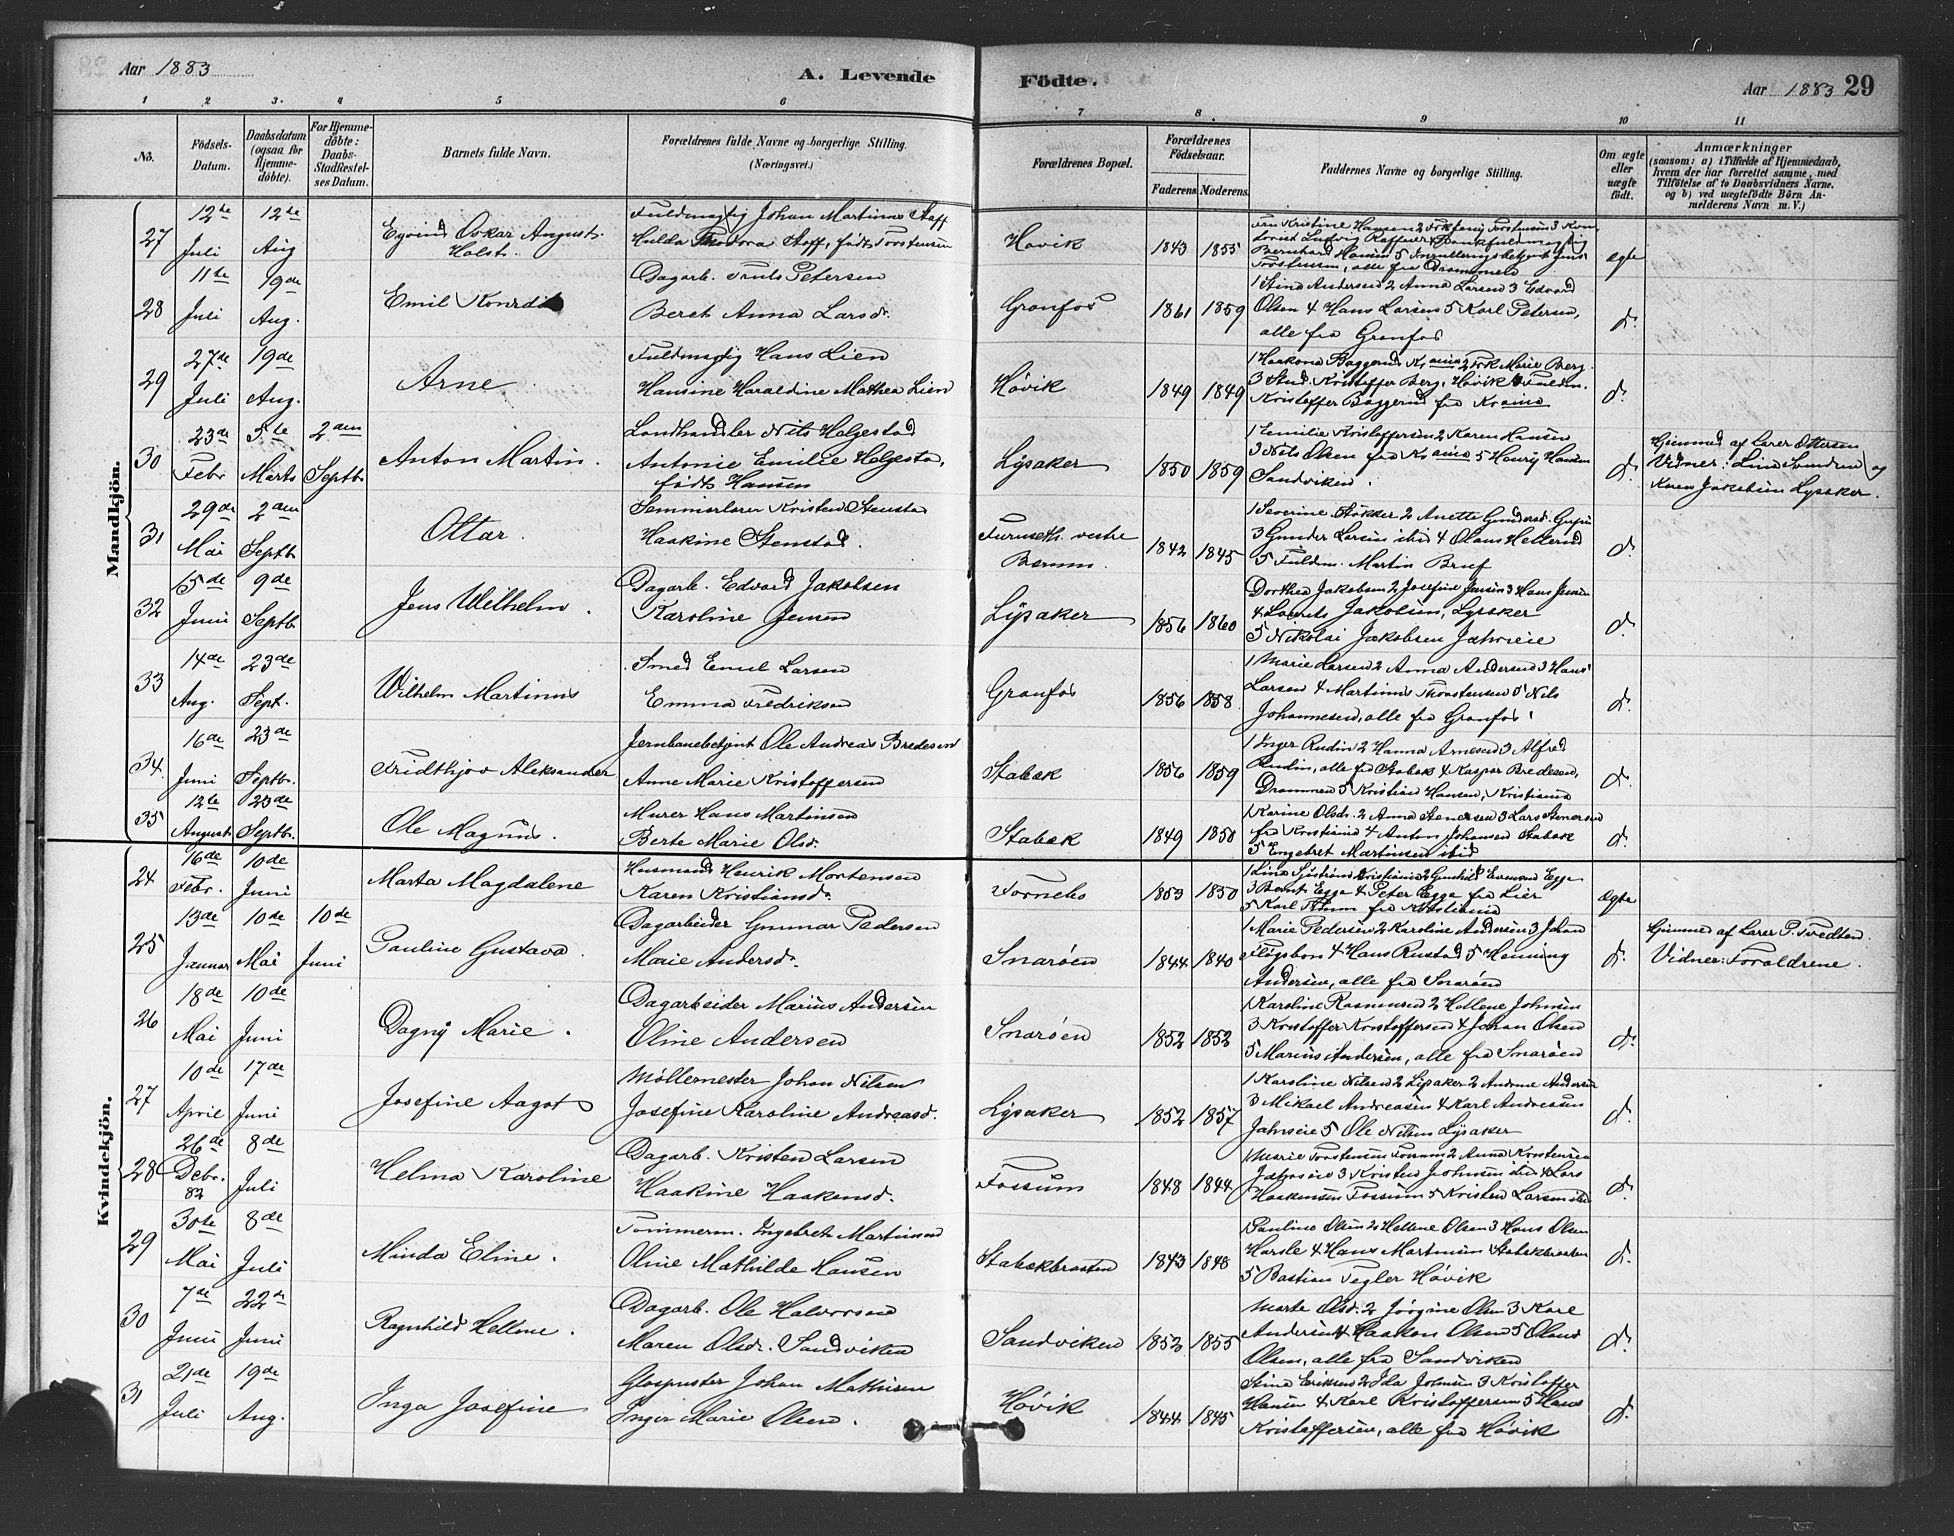 Aar 1883
A. Levende
Födte.
Aar 1883 29
1 2 3. 4 5 6 7 8 9 10 11
No.
Födsels-Datum.
Daabsdatum (ogsaa for Hjemmedöbte).
For Hjemmedöbte: Daabs-Stadfæstelses Datum.
Barnets fulde Navn.
Forældrenes fulde Navne og borgerlige Stilling. (Næringsvei.)
Forældrenes Bopæl.
Forældrenes Födselsaar.
Faderens. Moderens.
Faddernes Navne og borgerlige Stilling.
Om ægte eller uægte födt.
Anmærkninger
(saasom: a) i Tilfælde af Hjemmedaab, hvem der har forrettet samme, med Tilföielse af to Daabsvidners Navne, og b) ved uægtefödte Börn Anmelderens Navn m. V.)
Mandkjön.
27 12te Juli 12te Aug Eyvind Oskar August Holst.
Fuldmægtig Johan Martinus Stoff
Hulda Theodora Stoff, födt Torstensen
Høvik 1843 1855
alle fra Drammen
ægte
28 11te Juli 19de Aug. Emil
Dagarb. Truls Petersen
Beret Anna Larsd.
Granfos 1861 1859
1 Stina Andersen 2 Anna Larsen 3 Edvard
Olsen 4 Hans Larsen 5 Karl Petersen,
alle fra Granfos
d.
29 27de Juli 19de Aug. Arne
Fuldmægtig Hans Lien
Hansine Haraldine Mathea Lien
Høvik 1849 1849
3 Stud. Kristoffer Berg, Høvik 4 Fuldm.
Kristoffer Baggerud fra Krania
d.
30 23de Febr 5te Marts 2den Septb. Anton Martin.
Landhandler Nils Helgestad
Antonie Emilie Helgestad,
födt Hansen
Lysaker 1850 1859
1 Emilie Kristoffersen 2 Karen Hansen
3 Nils Olsen fra Krania 5 Henry Hansen
Sandviken.
d.
Hjemmed. af Lærer Ottersen
Vidner: Lina og
Karen Jakobsen Lysaker.
31 29de Mai 2den Septb. Ottar.
Seminarlærer Kristen Stenstad
Haakine Stenstad.
Furuseth. vestre
Bærum. 1842 1845
1 Severine Stokker 2 Anette
3 Gunder Larsen ibid 4 Olaus Hellerud
5 Fuldm. Martin
d.
32 15de Juni 9de Septb. Jens Wilhelm.
Dagarb. Edvard Jakobsen
Karoline Jensen
Lysaker 1856 1860
Dorthea Jakobsen 2 Josefine Jensen 3 Hans Jensen
4 Laurits Jakobsen, Lysaker
5 Nikolai Jakobsen
d.
33 14de Aug. 23de Sept. Wilhelm Martinus
Smed Emil Larsen
Emma Fredriksen
Granfos 1856 1858
1 Marie Larsen 2 Anna Andersen 3 Hans
Larsen 4 Martinus Thorstensen 5 Nils
Johannesen, alle fra Granfos
d.
34. 16de Juni 23de Septb. Fridthjov Aleksander
Jernbanebetjent Ole Andreas Bredesen
Anne Marie Kristoffersen
Stabæk 1856 1859
1 Inger Rudin 2 Hanna Arnesen 3 Alfred
Rudin, alle fra Stabæk 4 Kaspar Bredesen,
Drammen 5 Kristian Hansen, Kristiania
d.
35 12te August 23de Septb. Ole Magnus.
Murer Hans Martinsen
Berte Marie Olsd.
Stabæk 1849 1850
1 Karine Olsdr. 2 Anna Stenersen 3 Lars Stenersen
fra Kristiania 4 Anton Johansen Stabæk
5 Engebret Martinsen ibid
d.
Kvindekjön.
24 16de Febr. 10de Juni Marta Magdalene
Husmand Henrik Mortensen
Karen Kristiansd.
Fornebo 1853 1850
3 Bernt Egge 4 Peter Egge fra Lier
5 Karl fra Kristiania
ægte
25 13de Januar 10de Mai 10de Juni Pauline Gustava.
Dagarbeider Gunnar Pedersen
Marie Andersd.
Snarøen 1844 1840
1 Marie Pedersen 2 Karoline Andersen 3 Johan
Flogsbon 4 Hans Rustad 5 Henning
Andersen, alle fra Snarøen
d.
Hjemme af Lærer P. Tvedten.
Vidner: Forældrene.
26 18de Mai 10de Juni Dagny Marie.
Dagarbeider Marius Andersen
Oline Andersen
Snarøen 1852 1852
1 Karoline Rasmussen 2 Hellene Johnsen
3 Kristoffer Kristoffersen 4 Johan Olsen
5 Marius Andersen, alle fra Snarøen
d.
27 10de April 17de Juni Josefine Aagot
Møllemester Johan Nilsen
Josefine Karoline Andreasd.
Lysaker 1852 1857
1 Karoline Nilsen 2 Lysaker 2 Andrine Andersen
3 Mikael Andreasen 4 Karl Andreasen
5 Ole Nilsen Lysaker
d.
28 26de Debr. 82 8de Juli Helma Karoline
Dagarb. Kristen Larsen
Haakine Haakensd.
Fossum 1848 1844
1 Marie Torstensen Fossum 2 Anna Kristensen
3 Kristen Johnsen ibid 4 Lars
Haakensen Fossum 5 Kristen Larsen ibid
d.
29 30te Mai 8de Juli Minda Eline.
Tømmerm. Ingebret Martinsen
Oline Mathilde Hansen
Stabækbraaten 1843 1848
1 Pauline Olsen 2 Hellene Olsen 3 Hans Olsen
Harsle 4 Hans Martinsen Stabækbraaten
5 Bastian Tegler Høvik
d.
30 7de Juni 22de Juni Ragnhild Hellene.
Dagarb. Ole Halvorsen
Maren Olsdr. Sandviken
Sandviken 1852 1855
Marte Olsd. 2 Jørgine Olsen 3 Karl
Andersen 4 Haakon Olsen 5 Olaus
Olsen, alle fra Sandviken
d.
31 21de Juli 19de Aug. Inga Josefine
Glaspuster Johan Mathisen
Inger Marie Olsen.
Høvik 1844 1845
Stina Eriksen 2 Ida Johnsen 3 Kristoffer
Hansen 4 Karl Kristoffersen 5 Hans
Kristoffersen, alle fra Høvik
d.